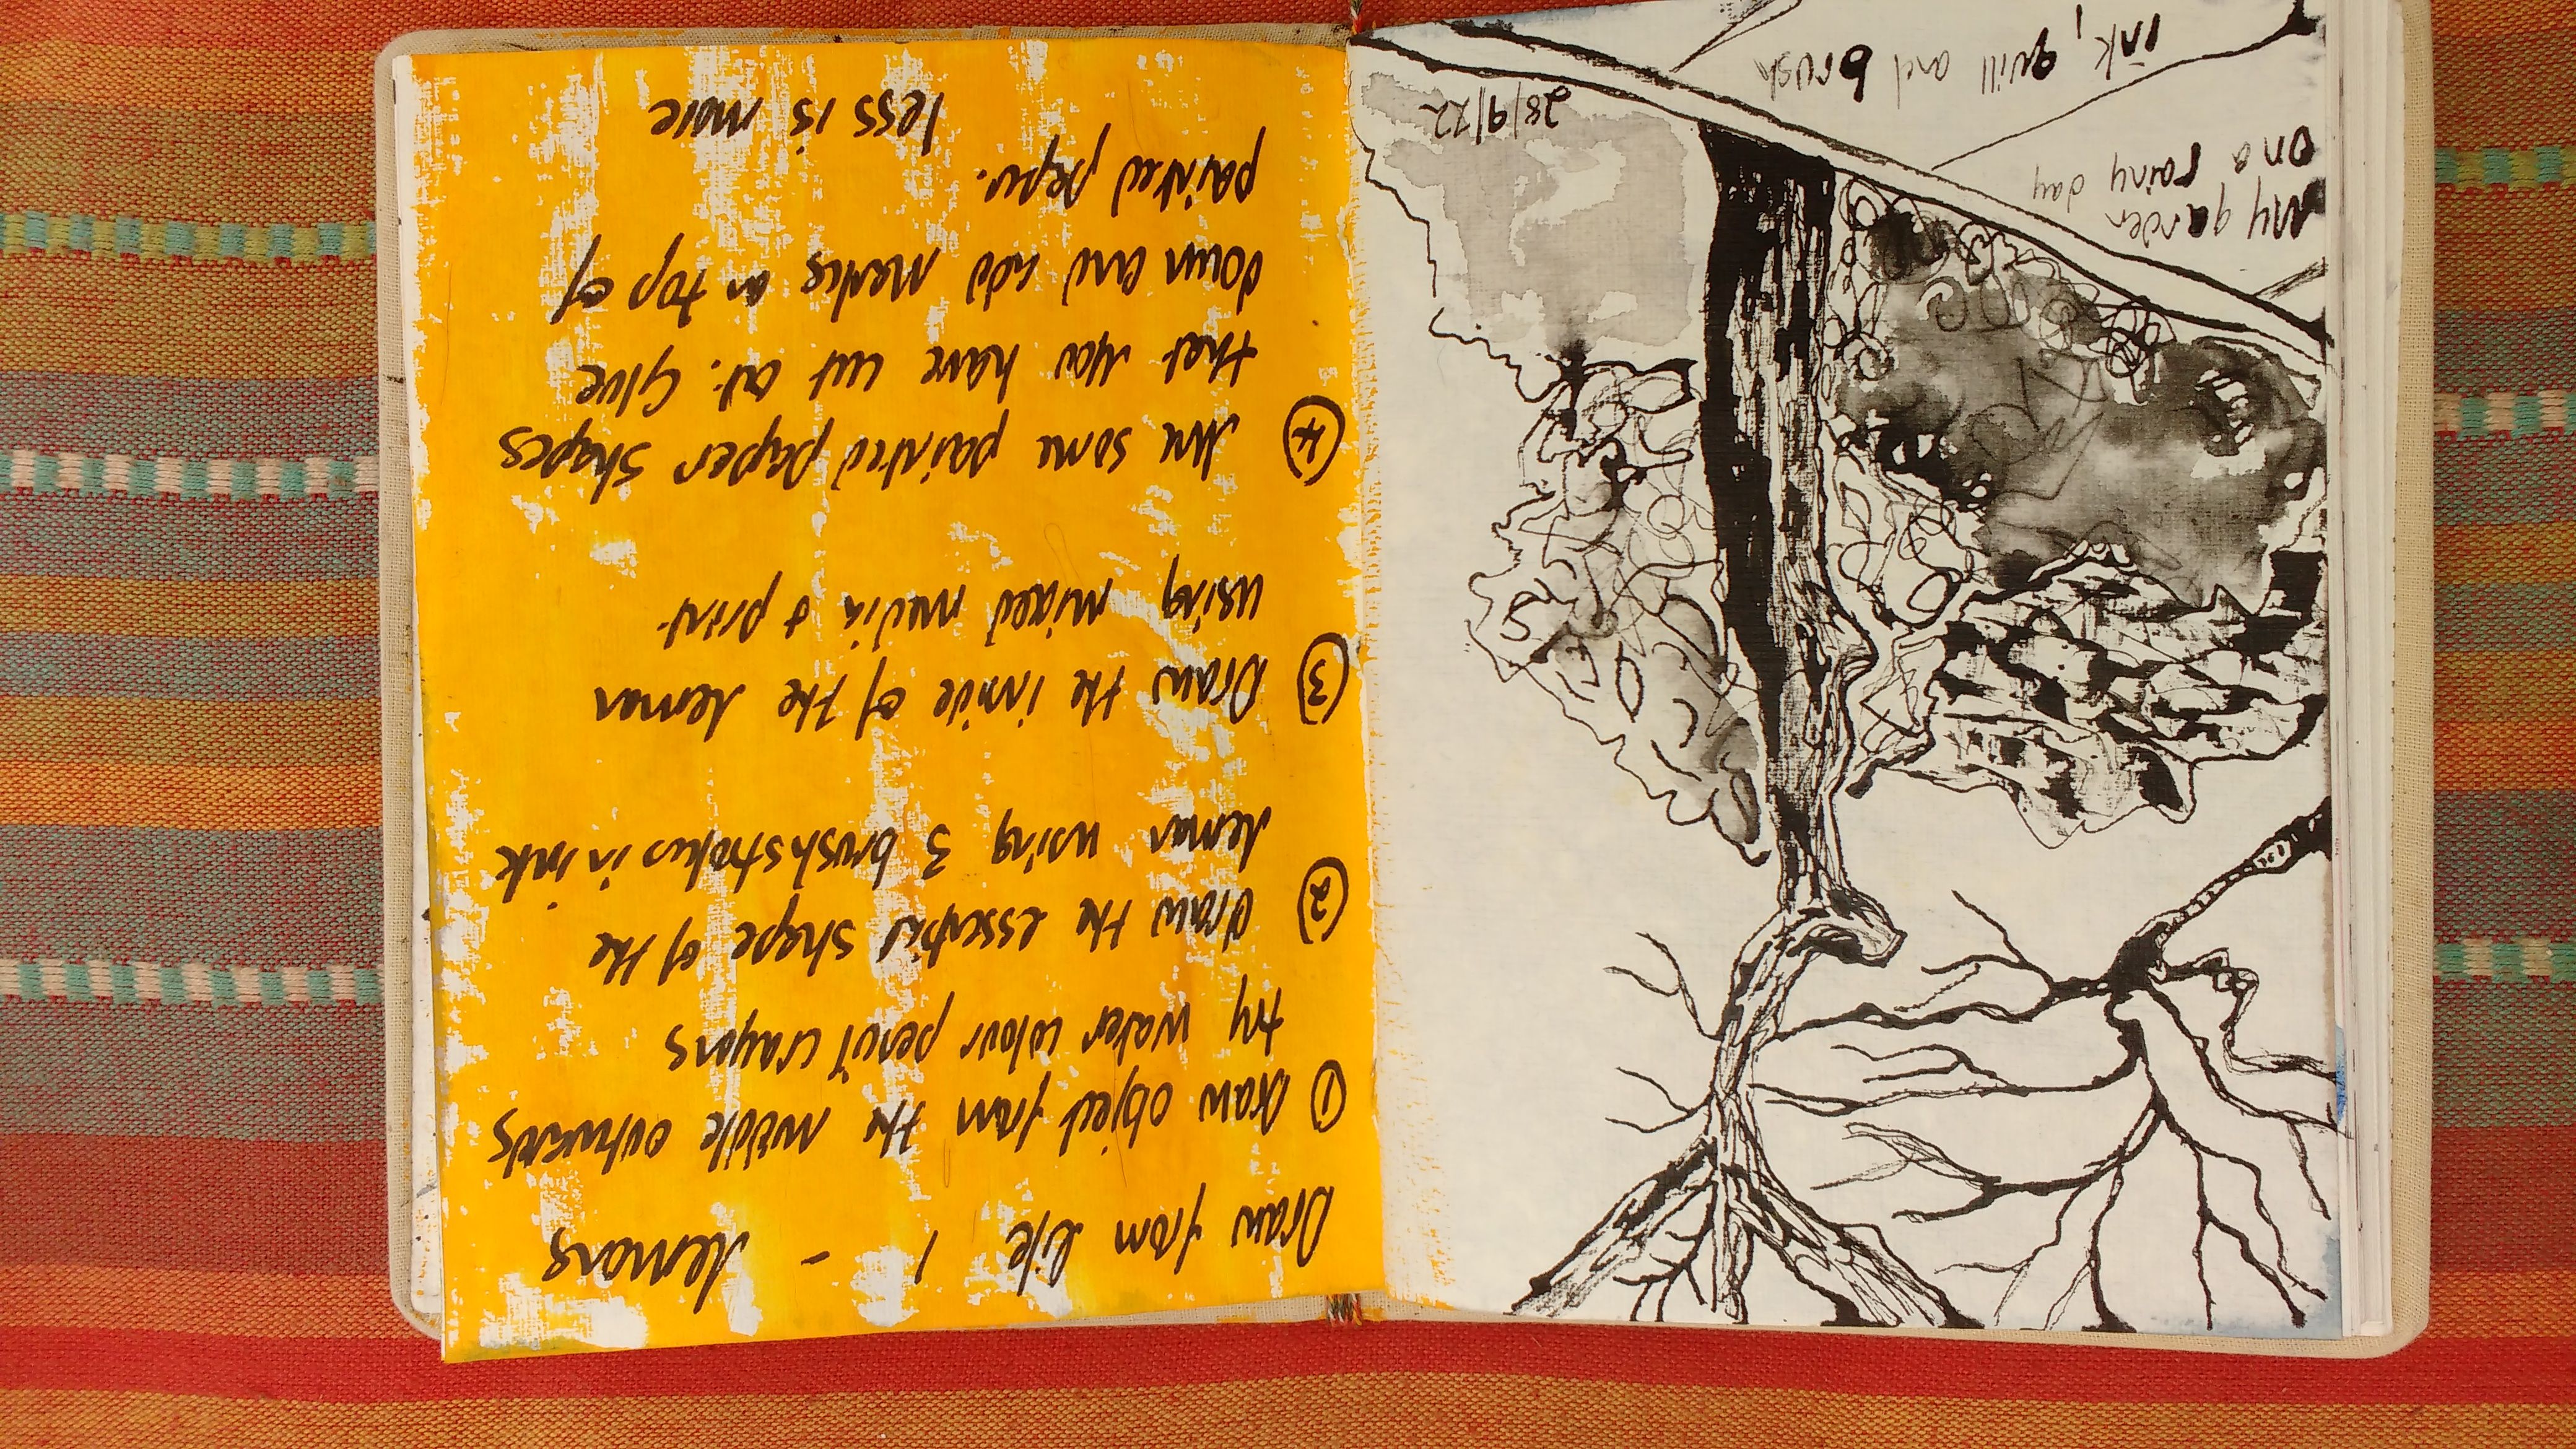 Draw from life 1 - Lemons
① Draw object from the middle outwards
try water colour pencil crayons
② Draw the essential shape of the
Lemon using 3 brush strokes in ink.
③ Draw the inside of the Lemon
using mixed media & print.
④ Use some painted paper shapes
that you have cut out. Glue
down and add marks on top of
painted paper.
less is more
My garden
on a rainy day
ink, quill and brush
28/9/22